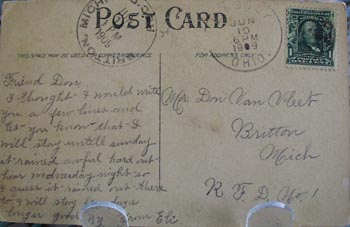 POST CARD
BRITTON, MICH.
1909
JUN
10
6 PM
1909
OHIO.
THIS SPACE MAY BE USED FOR CORRESPONDENCE
FOR ADDRESS ONLY
Friend Don.
I thought I would write
you a few lines and
let you know that I
will stay untill sunday
it rained awful hard out
hear wednesday night so
I guess it rained out there
so I will stay few days
longer good by from Eli
Mr. Don Van Vleet
Britton
Mich
R. F. D. No. 1